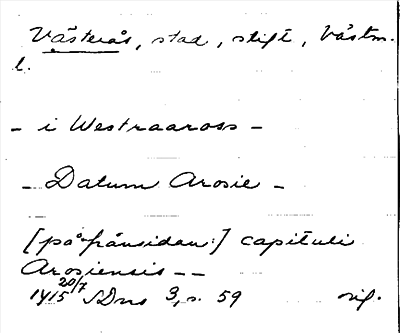 Västerås, stad, stift, Västm.
l.
- i Westraaross -
- Datum Arosie -
[på frånsidan:] capituli
Arosiensis - -
1415 20/7 SDns 3, s. 59 orig.